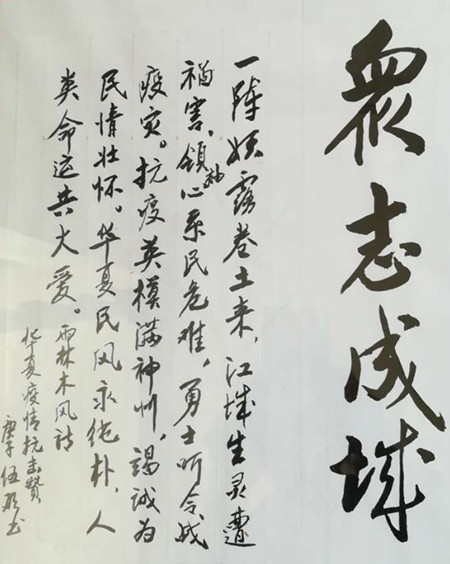 衆志成城
一陣妖霧卷土来,江城生灵遭
祸害,领袖心系民危难,勇士听令战
疫灾。抗疫英模满神州,竭诚为
民情壮怀。华夏民风永纯朴,人
类命运共大爱。雨林木风诗
华夏疫情抗击赞
庚子伍书